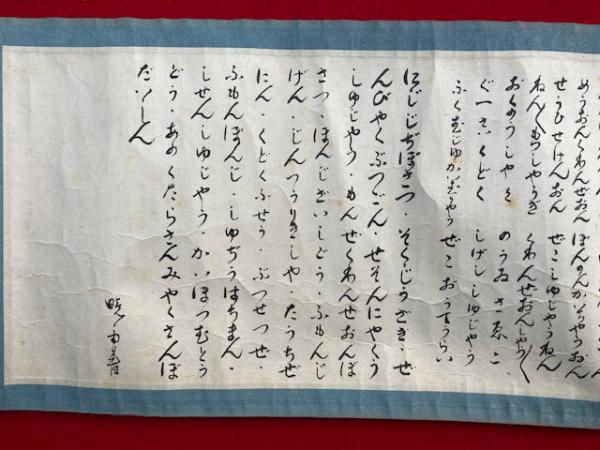 めうおんくわんぜおん ぼんのんかいてうおん
せうひせけんおん ぜこしゆじやうねん
ねん〱もつしやうぎ くわんぜおんしやう〱
おくのうしやく のうゐさゑこ
ぐ一さいくどく しげんしゆじやう
ぜこおうてうらい
にじじぢぼさつ・そくじうざき・ぜ
んびやくぶつごん・せそんにやくう
しゆじやう・もんぜくわんせおんぼ
さつ・ほんじざいしごう・ふもんじ
げん・じんつうりきしや・たうちぜ
にん・くどくふせう・ぶつせつぜ・
ふもんぼんじ・しゆぢうはちまん・
しせんしゆじやう・かいほつむとう
どう・あのくたらさんみやくさんぼ
だいしん